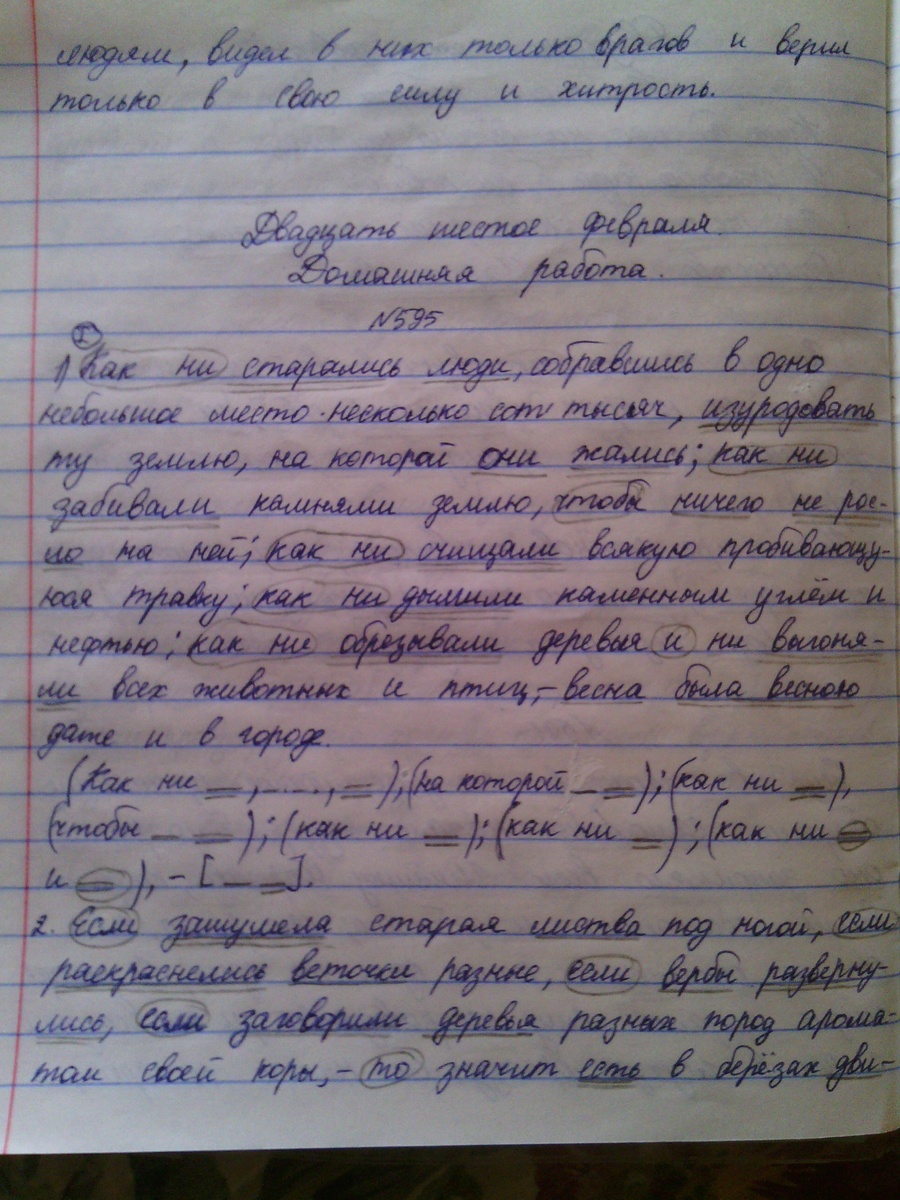 людям, видел в них только врагов и верил
только в свою силу и хитрость.
Двадцать шестое февраля.
Домашняя работа.
№595
I
1) Как ни старались люди, собравшись в одно
небольшое место несколько сот тысяч, изуродовать
ту землю, на которой они жались; как ни
забивали камнями землю, чтобы ничего не рос-
ло на ней; как ни счищали всякую пробивающу-
юся травку; как ни дымили каменным углём и
нефтью; как ни обрезывали деревья и ни выгоня-
ли всех животных и птиц, - весна была весною
даже и в городе.
(Как ни =, -.-., =); (на которой - =); (как ни =),
(чтобы - =); (как ни =); (как ни =); (как ни =
и =), - [- =].
2. Если зашумела старая листва под ногой, если
раскраснелись веточки разные, если вербы разверну-
лись, если заговорили деревья разных пород арома-
том своей коры, - то значит есть в берёзах дви-